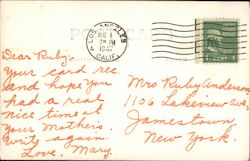 POST CARD
LOS ANGELES
4
AUG 1
7 PM
1947
CALIF.
Dear Ruby:
Your card rec.
and hope you
had a real
nice time at
your Mothers.
Write again.
Love, Mary.
Mrs Ruby Anderson
1106 Lakeview Ave.
Jamestown
New York.